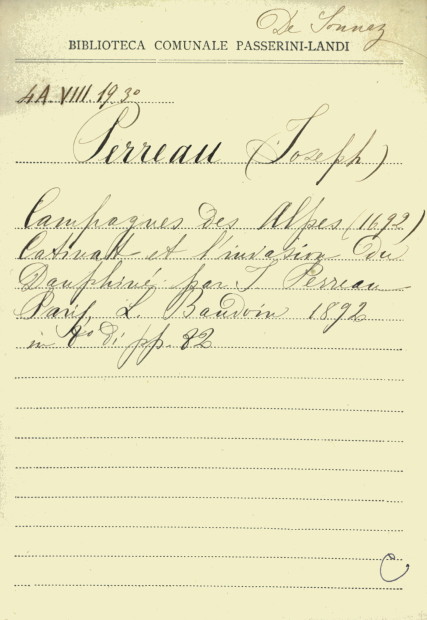 De Sonnaz
BIBLIOTECA COMUNALE PASSERINI-LANDI
4A. VIII. 19.30
Perreau (Joseph)
Campagnes des Alpes (1692)
Catinatt et l'invasion du
Dauphiné par J Perreau
Paris, L. Baudoin 1892
in 4o di pp. 82
C